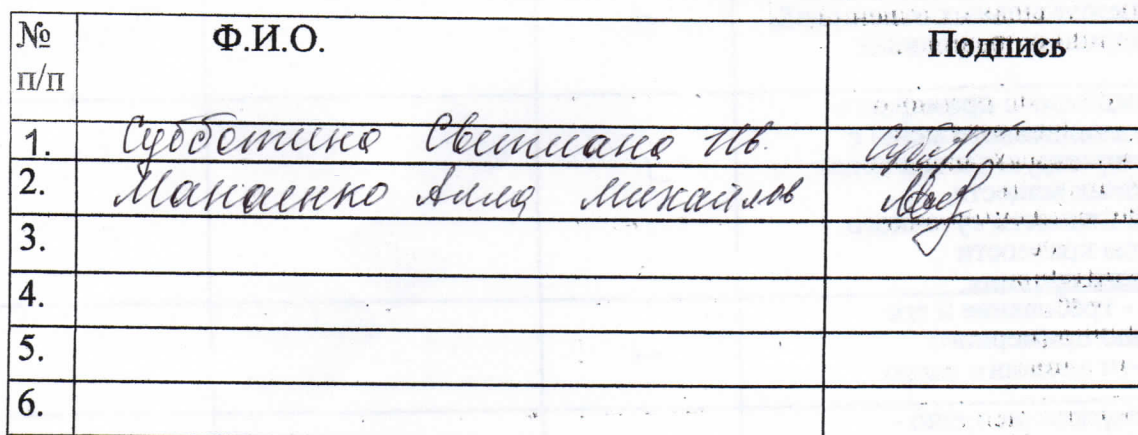 № п/п Ф.И.О. Подпись
1. Субботина Светлана Ив.
2. Манаенко Алла Михайлов
3.
4.
5.
6.